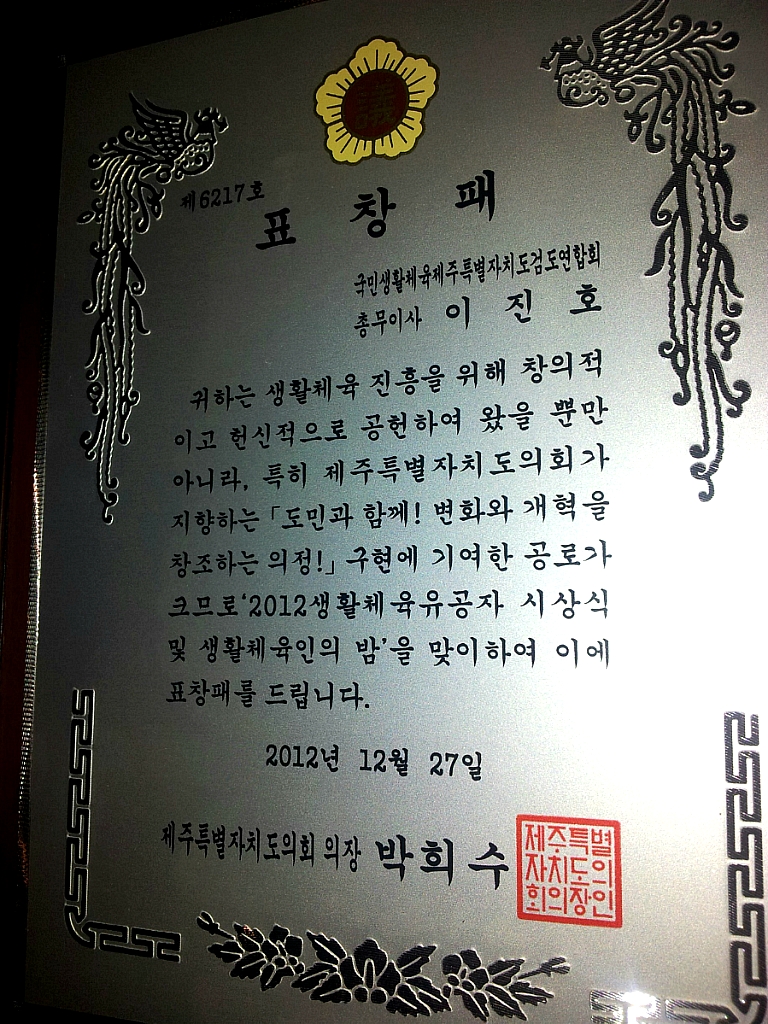 議
제6217호
표 창 패
국민생활체육제주특별자치도검도연합회
총무이사 이 진 호
귀하는 생활체육 진흥을 위해 창의적
이고 헌신적으로 공헌하여 왔을 뿐만
아니라, 특히 제주특별자치도의회가
지향하는 「도민과 함께! 변화와 개혁을
창조하는 의정!」 구현에 기여한 공로가
크므로 '2012생활체육유공자 시상식
및 생활체육인의 밤'을 맞이하여 이에
표창패를 드립니다.
2012년 12월 27일
제주특별자치도의회 의장 박희수
제주특별
자치도의
회의장인